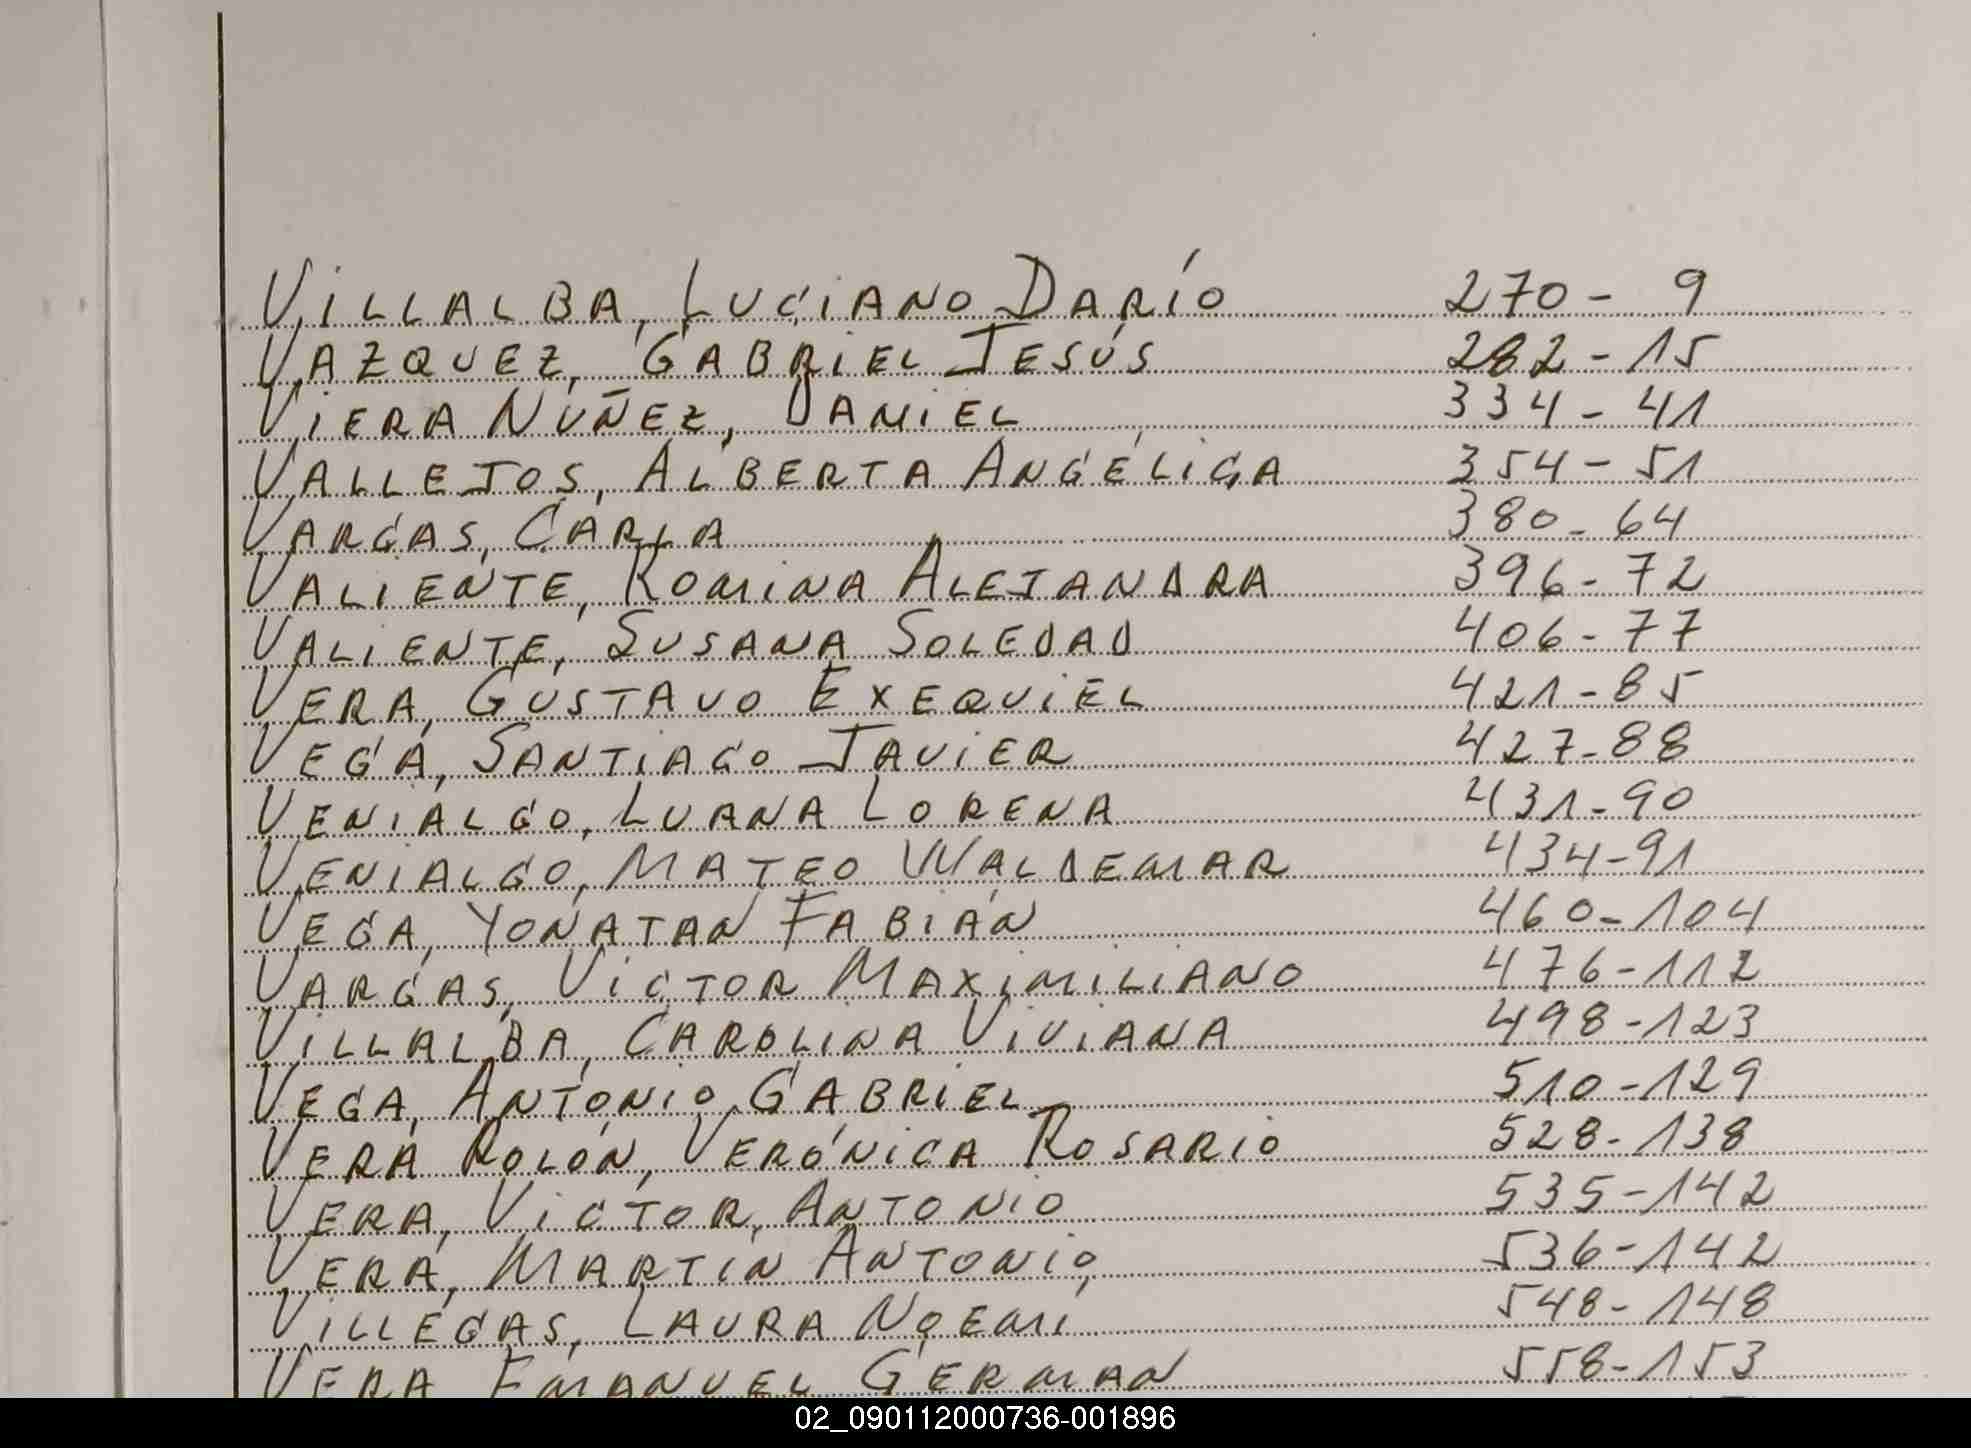 VILLALBA, LUCIANO DARÍO 270 - 9
VAZQUEZ, GABRIEL JESÚS 282 - 15
VIERA NUÑEZ, DANIEL 334 - 41
VALLEJOS, ALBERTA ANGÉLICA 354 - 51
VARGAS, CARLA 380 - 64
VALIENTE, ROMINA ALEJANDRA 396 - 72
VALIENTE, SUSANA SOLEDAD 406 - 77
VERA, GUSTAVO EXEQUIEL 421 - 85
VEGA, SANTIAGO JAVIER 427 - 88
VENIALGO, LUANA LORENA 431 - 90
VENIALGO, MATEO WALDEMAR 434 - 91
VEGA, YONATAN FABIÁN 460 - 104
VARGAS, VICTOR MAXIMILIANO 476 - 112
VILLALBA, CAROLINA VIVIANA 498 - 123
VEGA, ANTONIO GABRIEL 510 - 129
VERA ROLÓN, VERÓNICA ROSARIO 528 - 138
VERA, VICTOR ANTONIO 535 - 142
VERA, MARTÍN ANTONIO 536 - 142
VILLEGAS, LAURA NOEMÍ 548 - 148
VERA EMANUEL GERMAN 558 - 153
02_090112000736-001896